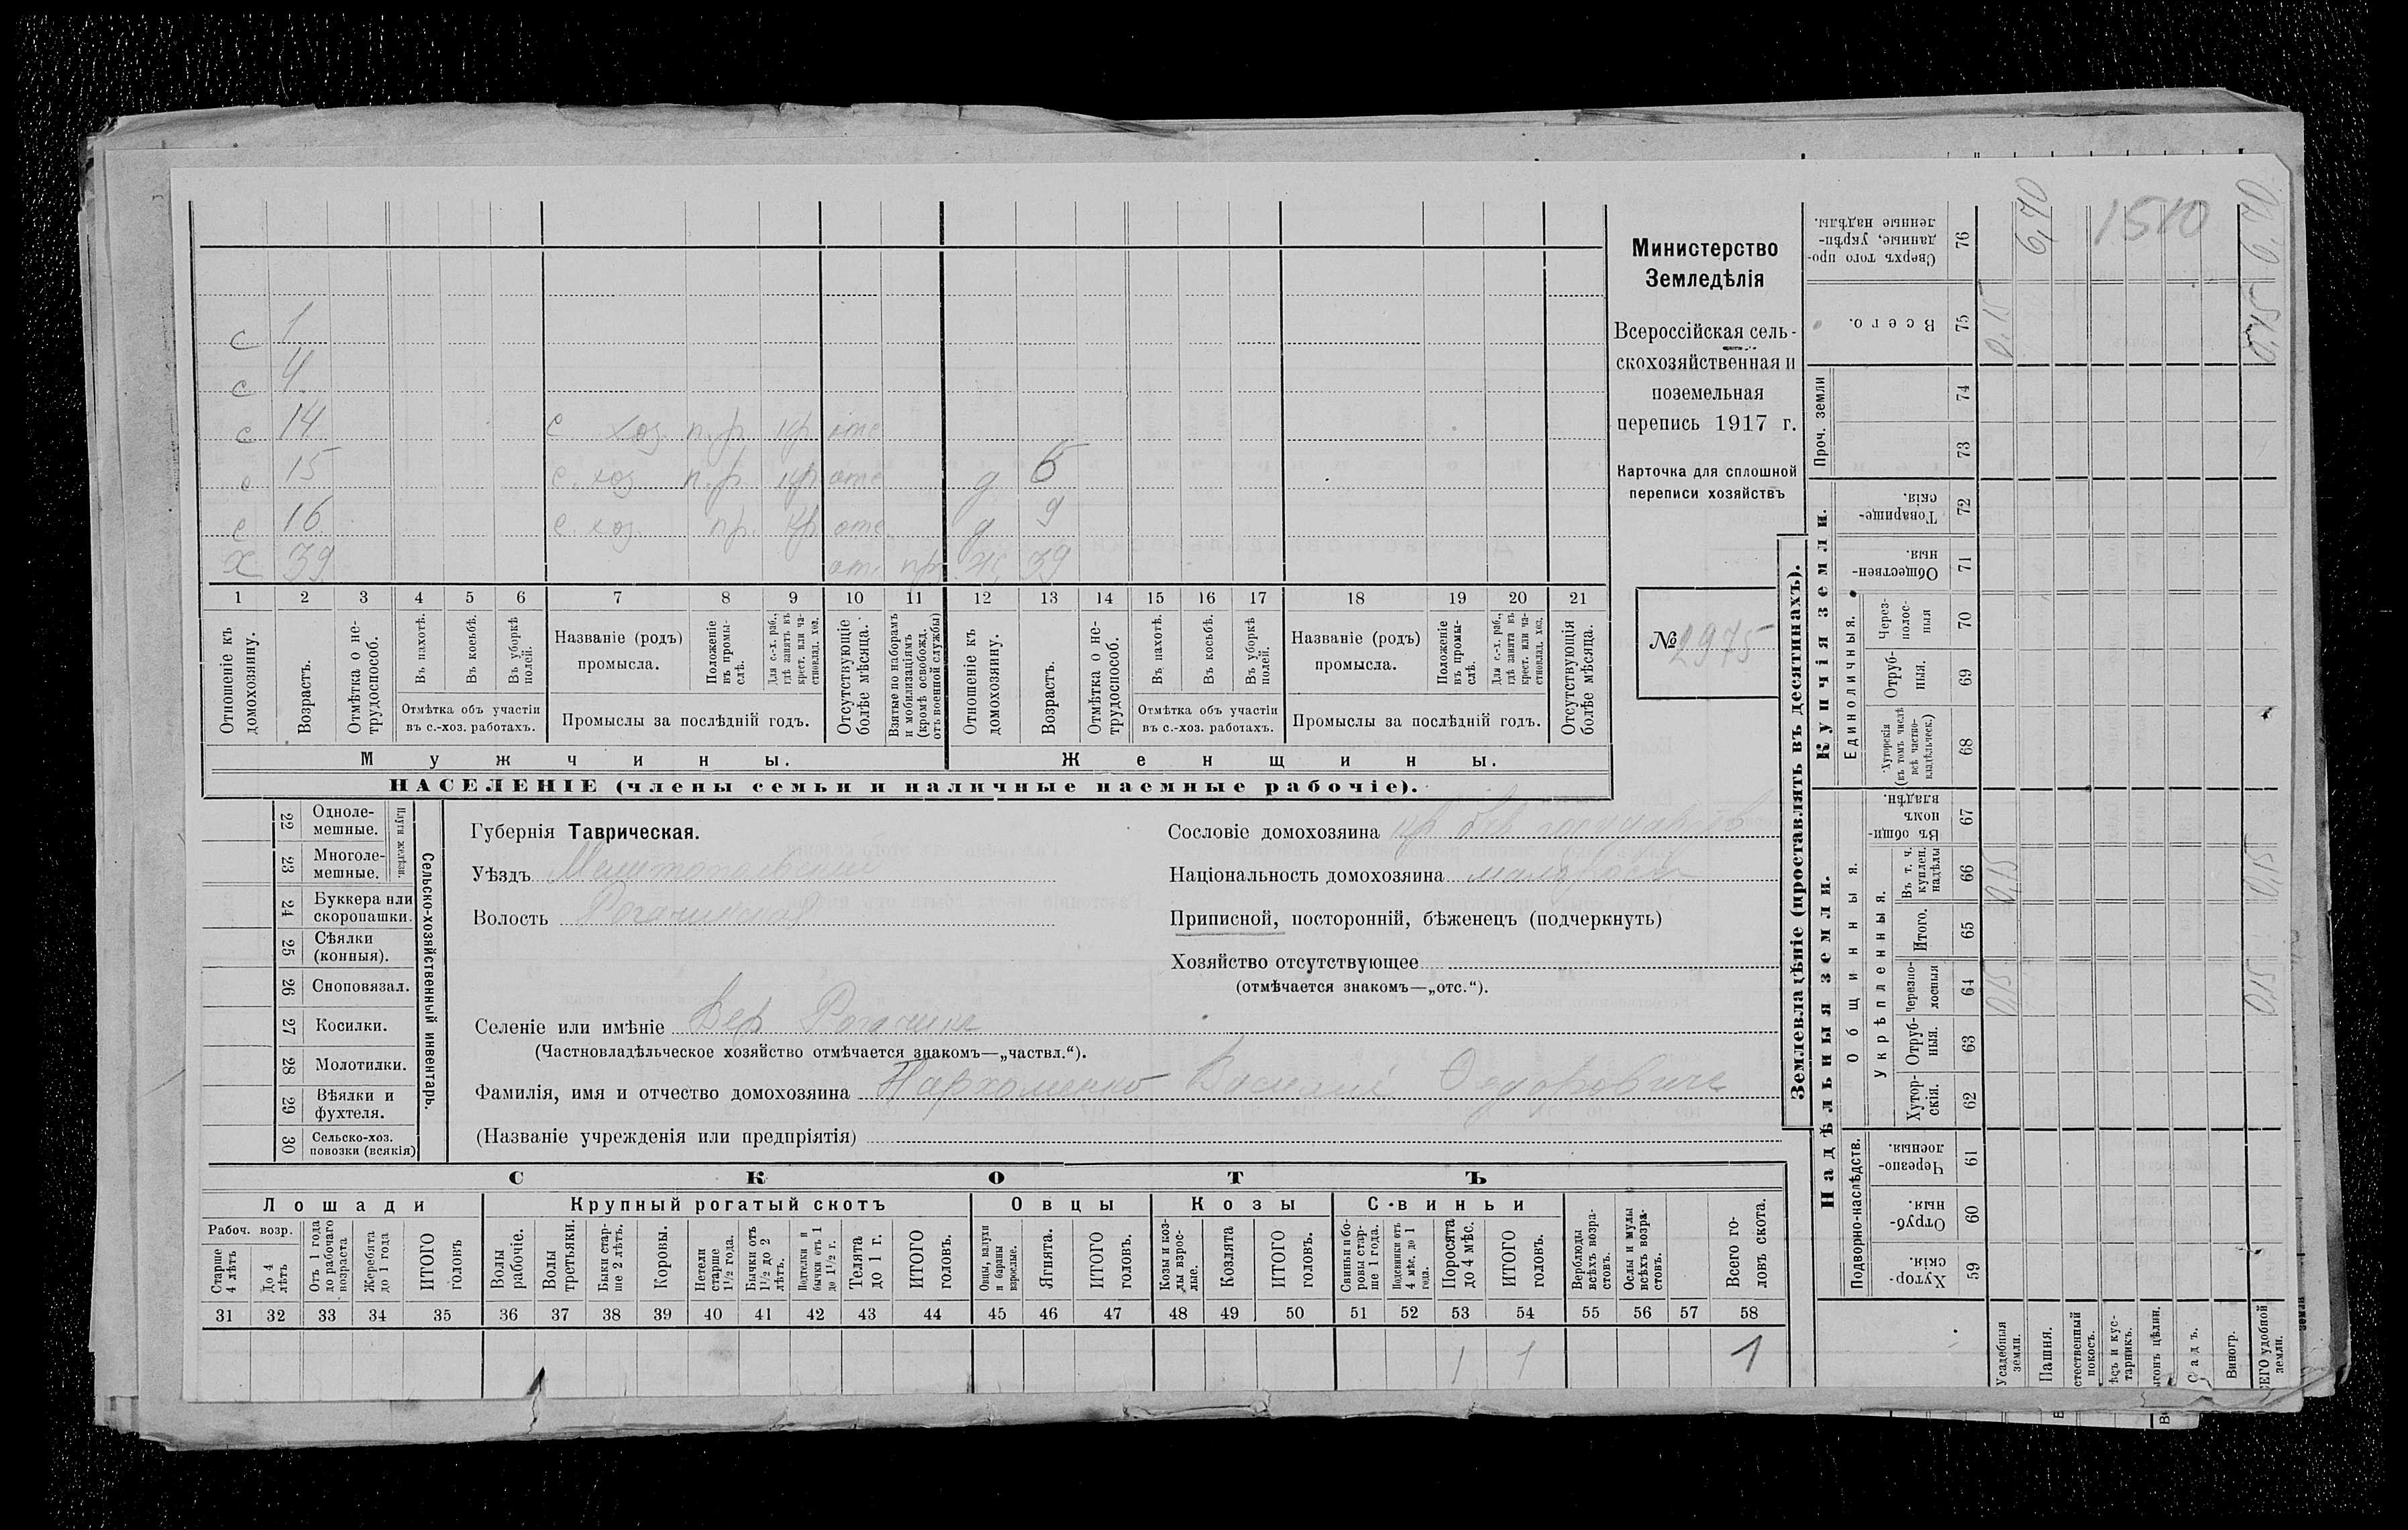 Министерство
Земледѣлія
Всероссійская сель-
скохозяйственная и
поземельная
перепись 1917 г.
Карточка для сплошной
переписи хозяйствъ
№ 2975
с 1
с 4
с 14 с. хоз. п. р. кр отс
с 15 с. хоз. п. р. кр отс д 6
с 16 с. хоз. пр. кр отс д 9
х 39 отс пр ж 39
1 2 3 4 5 6 7 8 9 10 11 12 13 14 15 16 17 18 19 20 21
Отношеніе къ домохозяину.
Возрастъ.
Отмѣтка о не-трудоспособ.
Въ пахотѣ.
Въ косьбѣ.
Въ уборкѣ полей.
Отмѣтка объ участіи
въ с.-хоз. работахъ.
Названіе (родъ)
промысла.
Положеніе въ промы-слѣ.
Для с.-х. раб., гдѣ занятъ въ крест. или ча-стновлад. хоз.
Промыслы за послѣдній годъ.
Отсутствующіе болѣе мѣсяца.
Взятые по наборамъ и мобилизаціямъ (кромѣ освобожд. отъ военной службы)
Отношеніе къ домохозяину.
Возрастъ.
Отмѣтка о не-трудоспособ.
Въ пахотѣ.
Въ косьбѣ.
Въ уборкѣ полей.
Отмѣтка объ участіи
въ с.-хоз. работахъ.
Названіе (родъ)
промысла.
Положеніе въ промы-слѣ.
Для с.-х. раб., гдѣ занята въ крест. или ча-стновлад. хоз.
Промыслы за послѣдній годъ.
Отсутствующія болѣе мѣсяца.
Мужчины.
Женщины.
НАСЕЛЕНІЕ (члены семьи и наличные наемные рабочіе).
22 Одноле-мешные.
23 Многоле-мешные.
Плуги желѣзн.
24 Буккера или скоропашки.
25 Сѣялки (конныя).
26 Сноповязал.
27 Косилки.
28 Молотилки.
29 Вѣялки и фухтеля.
30 Сельско-хоз. повозки (всякія)
Сельско-хозяйственный инвентарь.
Губернія Таврическая.
Уѣздъ Мелитопольскій
Волость Рогачикская
Селеніе или имѣніе Вер Рогачик
(Частновладѣльческое хозяйство отмѣчается знакомъ—„частвл.“).
Фамилія, имя и отчество домохозяина Пархоменко Василій Федорович
(Названіе учрежденія или предпріятія)
Сословіе домохозяина кр
Національность домохозяина малоросс
Приписной, посторонній, бѣженецъ (подчеркнуть)
Хозяйство отсутствующее
(отмѣчается знакомъ—„отс.“).
СКОТЪ
Лошади
Крупный рогатый скотъ
Овцы
Козы
Свиньи
Рабоч. возр.
Старше 4 лѣтъ
До 4 лѣтъ
Отъ 1 года до рабочаго возраста
Жеребята до 1 года
ИТОГО головъ
Волы рабочіе.
Волы третьяки.
Быки стар-ше 2 лѣтъ.
Коровы.
Нетели старше 1½ года.
Бычки отъ 1½ до 2 лѣтъ.
Подтелки и бычки отъ 1 до 1½ г.
Телята до 1 г.
ИТОГО головъ.
Овцы, валухи и бараны взрослые.
Ягнята.
ИТОГО головъ.
Козы и коз-лы взрос-лые.
Козлята
ИТОГО головъ.
Свиньи и бо-ровы стар-ше 1 года.
Подсвинки отъ 4 мѣс. до 1 года.
Поросята до 4 мѣс.
ИТОГО головъ.
Верблюды всѣхъ возра-стовъ.
Ослы и мулы всѣхъ возра-стовъ.
Всего го-ловъ скота.
31 32 33 34 35 36 37 38 39 40 41 42 43 44 45 46 47 48 49 50 51 52 53 54 55 56 57 58
1 1 1
Землевладѣніе (проставлять въ десятинахъ).
Надѣльныя земли.
Купчія земли.
Проч. земли
Подворно-наслѣдств.
Общинныя.
Укрѣпленныя.
Единоличныя.
Хутор-скія. 59
Отруб-ныя. 60
Черезпо-лосныя. 61
Хутор-скія. 62
Отруб-ныя. 63
Черезпо-лосныя 64
Итого. 65
Въ т. ч. куплен. надѣлы 66
Въ общин-номъ владѣн. 67
Хуторскія (въ томъ числѣ всѣ частно-владѣльческ.) 68
Отруб-ныя. 69
Через-полос-ныя 70
Обществен-ныя. 71
Товарище-скія. 72
73
74
Всего. 75
Сверхъ того про-данные, укрѣп-ленные надѣлы. 76
Усадебныя земли.
0,15 0,15 0,15
Пашня.
6,70
стественный покосъ.
ѣсъ и кус-тарникъ.
ыгонъ цѣлин.
Садъ.
Виногр.
СЕГО удобной земли.
0,15 0,15 0,15 6,70
1510